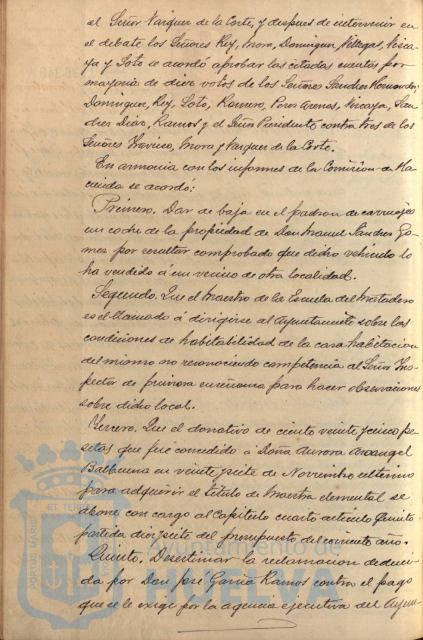 el Señor Vazquez de la Corte, y despues de intervenir en
el debate los Señores Rey, Mora, Dominguez, Villegas, Vizca-
ya y Soto se acordó aprobar las citadas cuentas por
mayoria de diez votos de los Señores Sanchez Hernandez,
Dominguez, Rey, Soto, Romero, Perez Arenes, Vizcaya, San-
chez Diaz, Ramos y el Señor Presidente contra tres de los
Señores Mora y Vazquez de la Corte.
En armonia con los informes de la Comision de Ha-
cienda se acordó:
Primero. Dar de baja en el padron de carruajes
un coche de la propiedad de Don Manuel Sanchez Go-
mez por resultar comprobado que dicho vehiculo lo
ha vendido á un vecino de otra localidad.
Segundo. Que el Maestro de la Escuela del Matadero
es el llamado á dirigirse al Ayuntamiento sobre las
condiciones de habitabilidad de la casa habitacion
del mismo no reconociendo competencia al Señor Ins-
pector de primera enseñanza para hacer observaciones
sobre dicho local.
Tercero. Que el donativo de ciento veinte y cinco pe-
setas que fué concedido á Doña Aurora Arcangel
Balbuena en veinte y siete de Noviembre ultimo
para adquirir el titulo de Maestra elemental se
abone con cargo al Capitulo cuarto articulo quinto
partida diez y siete del presupuesto del corriente año.
Quinto. Desestimar la reclamacion deduci-
da por Don José Garcia Ramos contra el pago
que se le exige por la agencia ejecutiva del Ayun-
PORTUS MARIS
ET TERR
Ayuntamiento de
HUELVA